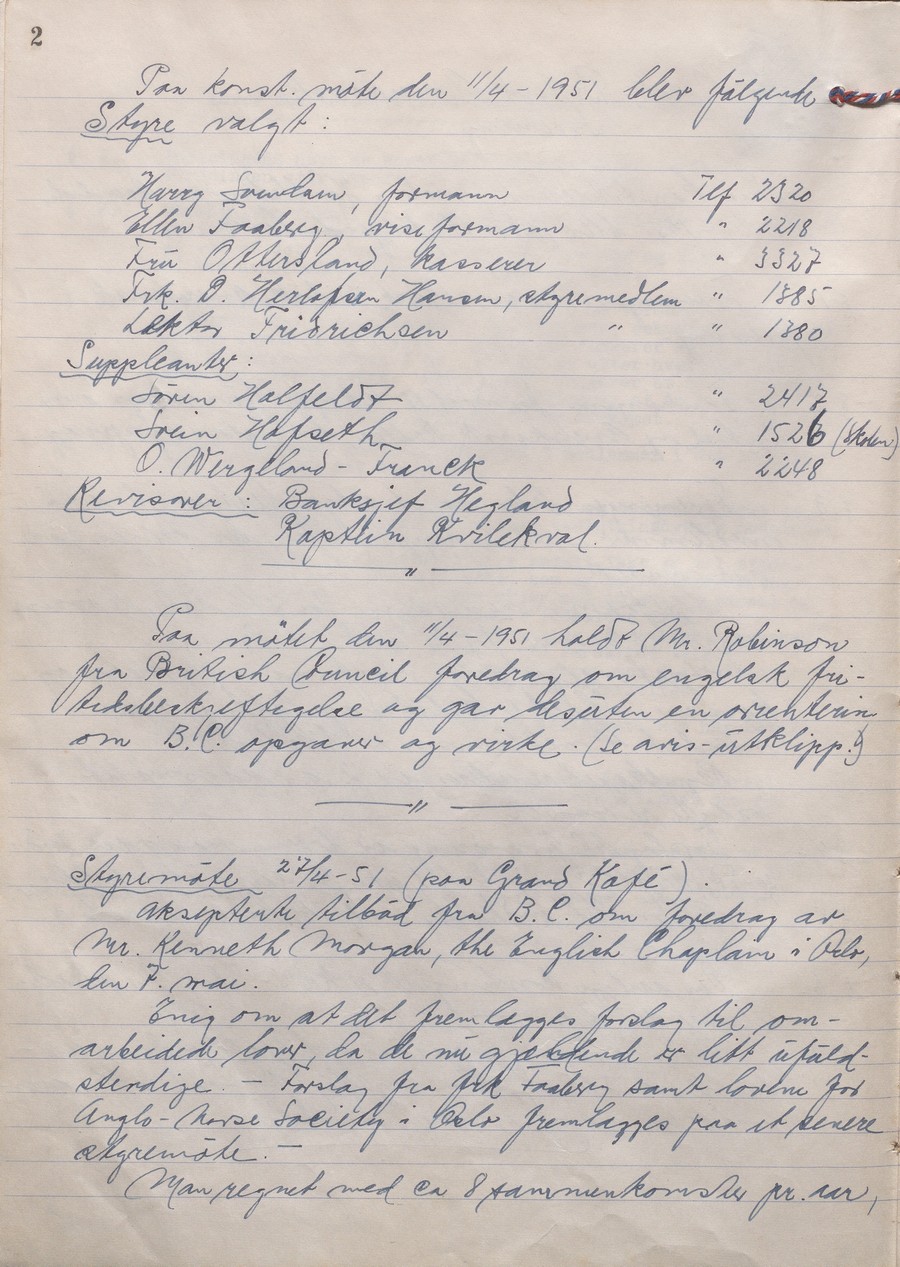 2
Paa konst. møte den 11/4 - 1951 blev følgende
Styre valgt:
Harry Svendsen, formann Tlf 2320
Ellen Faaberg, viseformann " 2218
Fru Ottersland, kasserer " 3327
Frk. D. Herlofsen Hansen, styremedlem " 1885
Lektor Fridrichsen " " 1380
Suppleanter:
Sören Halfeldt " 2417
Svein Hofseth " 1526 (Skolen)
O. Wergeland - Franck " 2248
Revisorer: Banksjef Hegland
Kaptein Kvilekval.
"
Paa mötet den 11/4 - 1951 holdt Mr. Robinson
fra British Council foredrag om engelsk fri-
tidsbeskjeftigelse og gav desuten en orientering
om B.C. opgaver og virke. (Se avis-utklipp!)
"
Styremöte 27/4-51 (paa Grand Kafé).
Aksepterte tilbud fra B.C. om foredrag av
Mr. Kenneth Morgan, the English Chaplain i Oslo,
den 7. mai.
Enig om at det fremlegges forslag til om-
arbeidede lover, da de nu gjældende er litt ufuld-
stendige. - Forslag fra frk Faaberg samt lovene for
Anglo-Norse Society i Oslo fremlægges paa et senere
styremöte. -
Man regnet med ca 8 sammenkomster pr. aar,